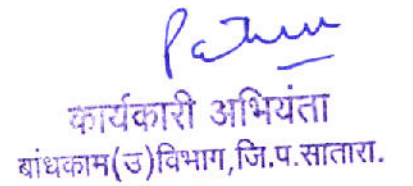 कार्यकारी अभियंता
बांधकाम(उ)विभाग,जि.प.सातारा.